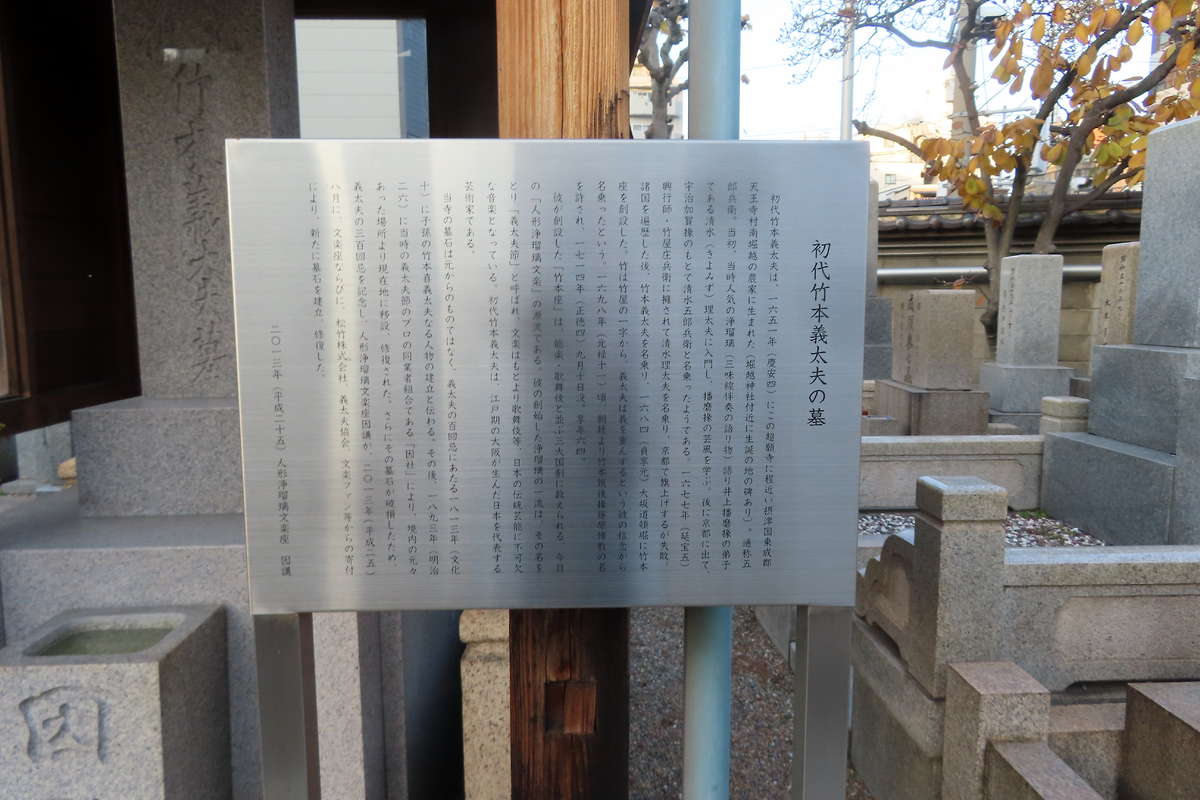 初代竹本義太夫の墓
初代竹本義太夫は、一六五一年(慶安四)にこの超願寺に程近い摂津国東成郡
天王寺村南堀越の農家に生まれた(堀越神社付近に生誕の地の碑あり)。通称五
郎兵衛。当初、当時人気の浄瑠璃(三味線伴奏の語り物)語り井上播磨掾の弟子
である清水(きよみず)理太夫に入門し、播磨掾の芸風を学ぶ。後に京都に出て、
宇治加賀掾のもとで清水五郎兵衛と名乗ったようである。一六七七年(延宝五)
興行師・竹屋庄兵衛に擁されて清水理太夫を名乗り、京都で旗上げするが失敗。
諸国を遍歴した後、竹本義太夫を名乗り、一六八四(貞享元)大坂道頓堀に竹本
座を創設した。竹は竹屋の一字から、義太夫は義を重んずるという彼の信念から
名乗ったという。一六九八年(元禄十一)頃、朝廷より竹本筑後掾藤原博教の名
を許され、一七一四年(正徳四)九月十日没。享年六四。
彼が創設した「竹本座」は、能楽、歌舞伎と並ぶ三大国劇に数えられる、今日
の「人形浄瑠璃文楽」の源流である。彼の創始した浄瑠璃の一流は、その名を
とり「義太夫節」と呼ばれ、文楽はもとより歌舞伎等、日本の伝統芸能に不可欠
な音楽となっている。初代竹本義太夫は、江戸期の大阪が生んだ日本を代表する
芸術家である。
当寺の墓石は元からのものではなく、義太夫の百回忌にあたる一八一三年(文化
十)に子孫の竹本喜義太夫なる人物の建立と伝わる。その後、一八九三年(明治
二六)に当時の義太夫節のプロの同業者組合である「因社」により、境内の元々
あった場所より現在地に移設、修復された。さらにその墓石が破損したため、
義太夫の三百回忌を記念し、人形浄瑠璃文楽座因講が、二〇一三年(平成二五)
八月に、文楽座ならびに、松竹株式会社、義太夫協会、文楽ファン等からの寄付
により、新たに墓石を建立、修復した。
二〇一三年(平成二十五)人形浄瑠璃文楽座 因講
竹本義太夫墓
因